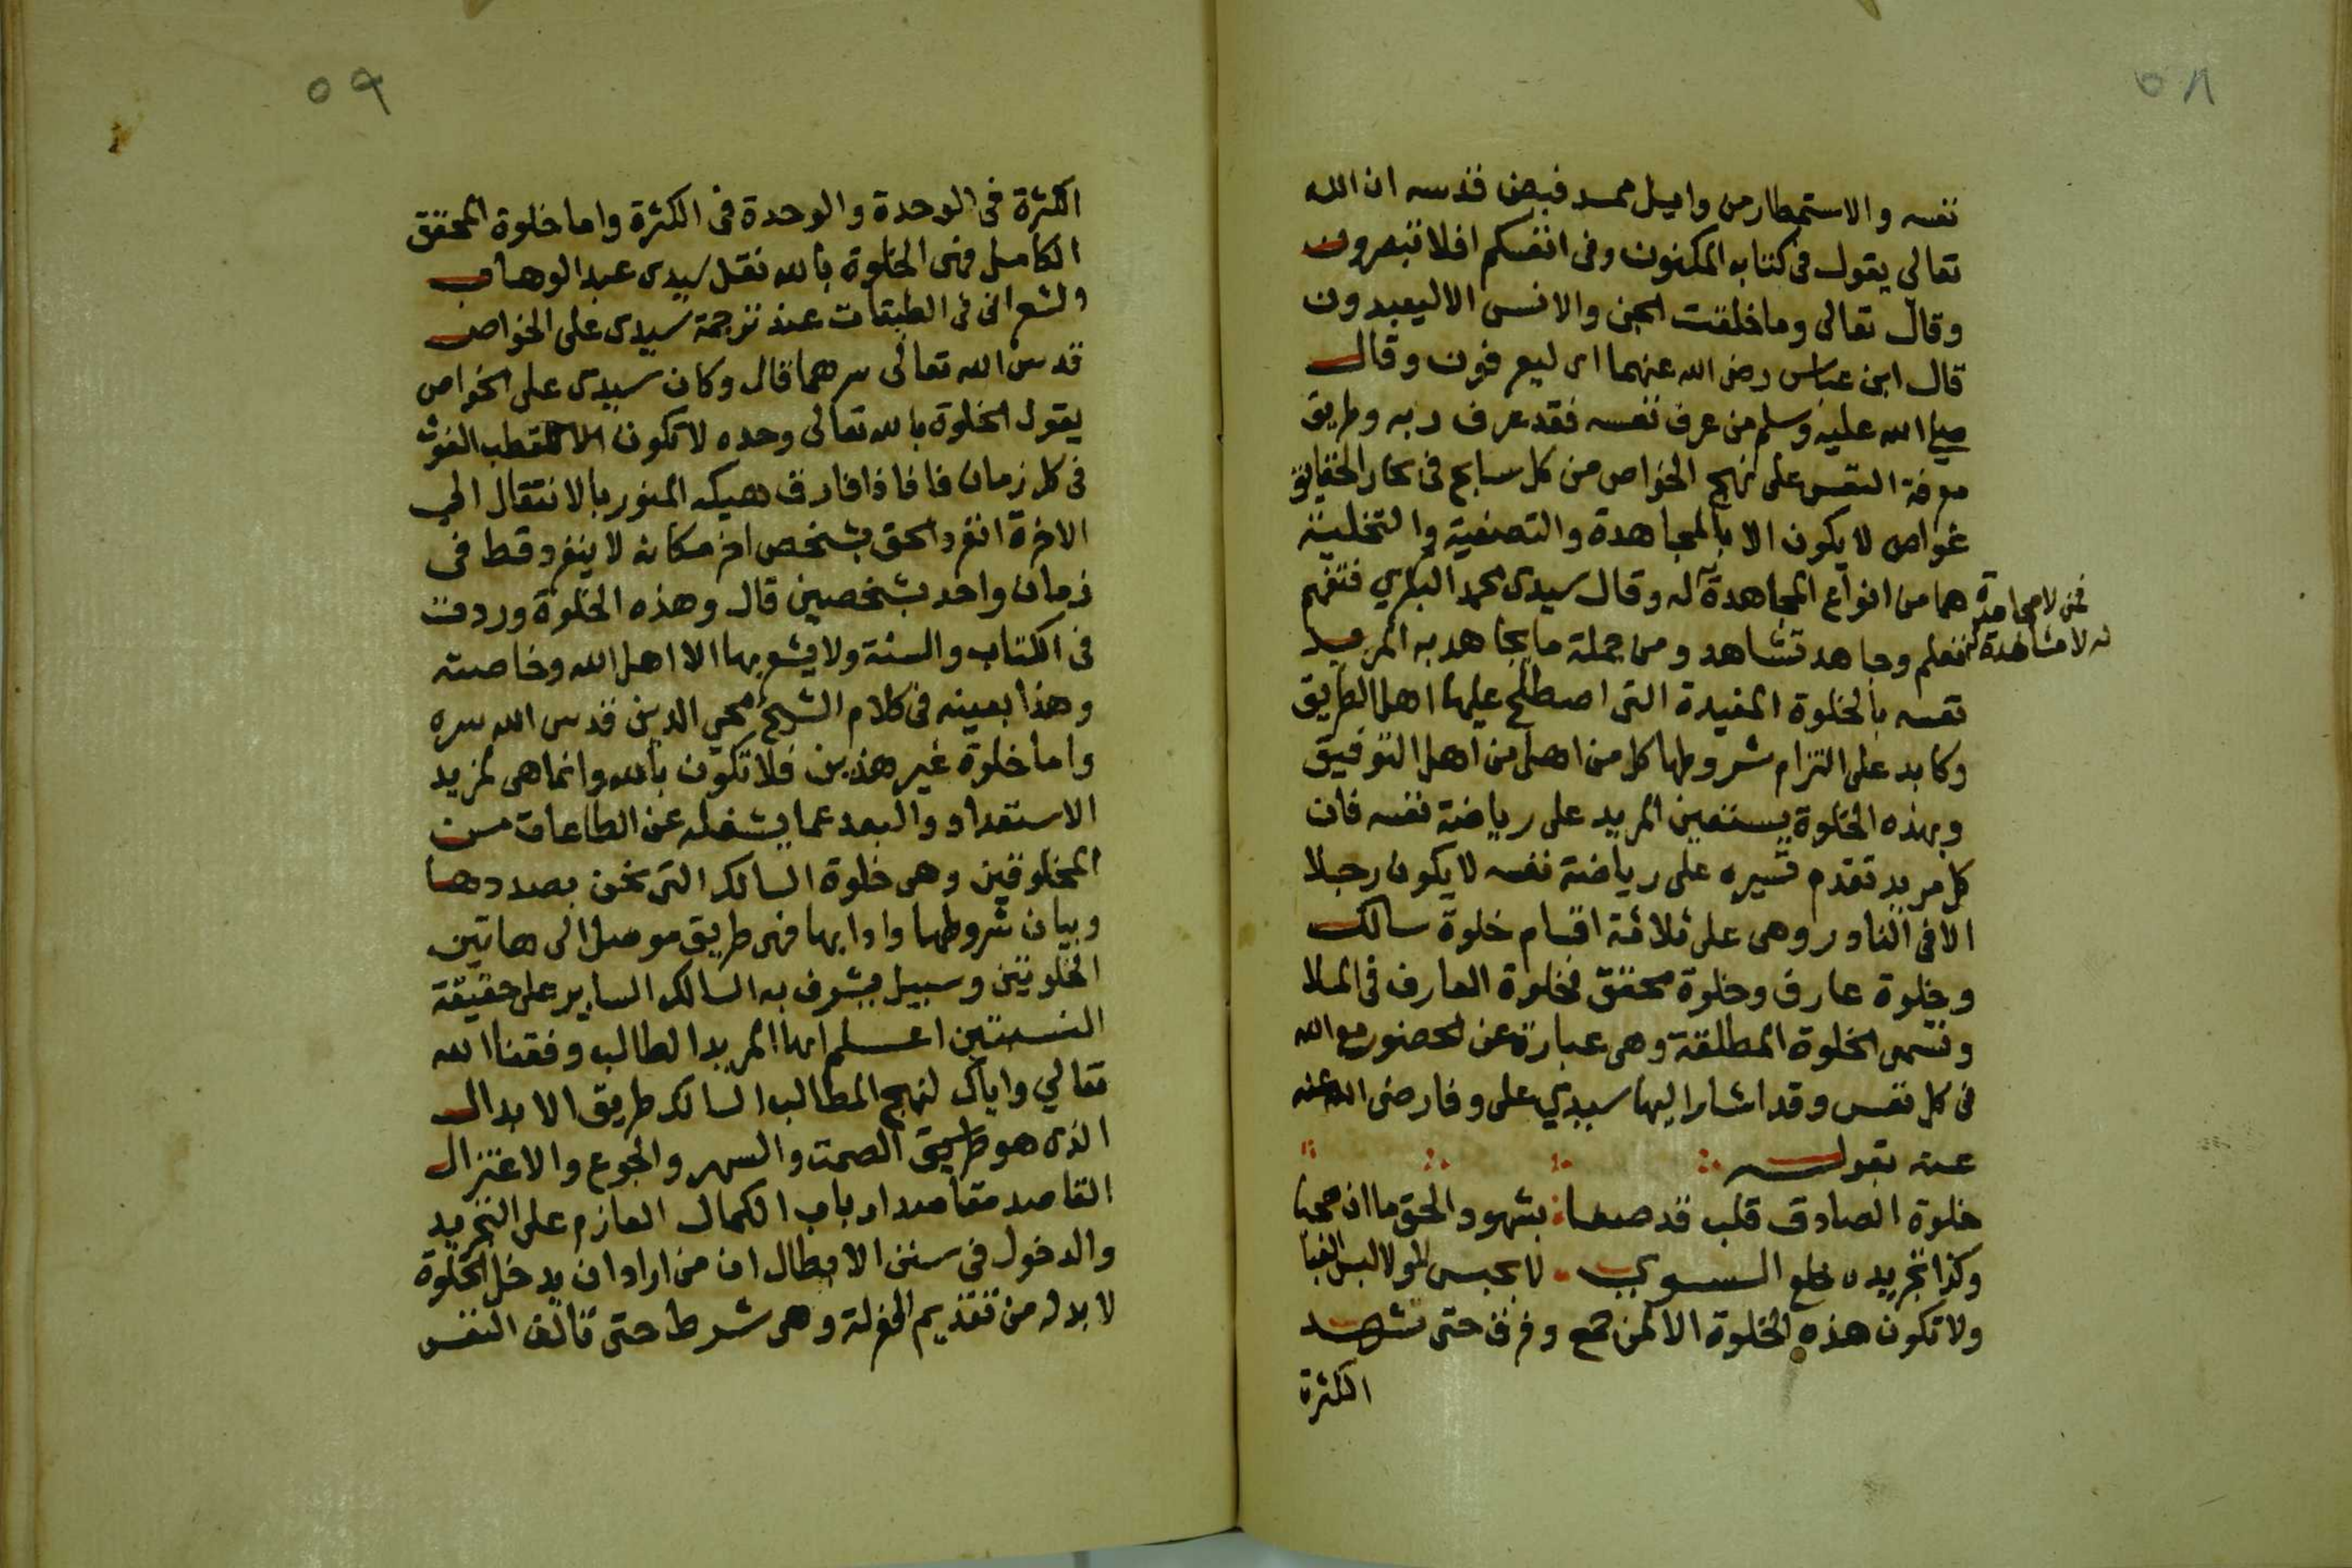 ٥٨
نفسه والاستمطار من وابيل ممد فيض قدسه ان الله
تعالى يقول فى كتابه المكنون وفى انفسكم افلا تبصرون
وقال تعالى وما خلقت الجن والانس الا ليعبدون
قال ابن عباس رضى الله عنهما اى ليعرفون وقال
صلى الله عليه وسلم من عرف نفسه فقد عرف ربه وطريق
معرفة النفس على نهج الخواص من كل سابح فى بحار الحقايق
غواص لا يكون الا بالمجاهدة والتصفية والتخلية
هما من انواع المجاهدة له وقال سيدى محمد البكري فتفهم
فمن لا مجاهدة
له لا مشاهدة له
فتعلم وجاهد تشاهد ومن جملة ما يجاهد به المريد
نفسه بالخلوة المفيدة التى اصطلح عليها اهل الطريق
وكابد على التزام شروطها كل من اهل من اهل التوفيق
وبهذه الخلوة يستعين المريد على رياضة نفسه فان
كل مريد تقدم سيره على رياضة نفسه لا يكون رجلا
الا فى النادر وهى على ثلاثة اقسام خلوة سالك
وخلوة عارف وخلوة محقق فخلوة العارف فى الملا
وتسمى الخلوة المطلقة وهى عبارة عن الحضور مع الله
فى كل نفس وقد اشار اليها سيدي على وفا رضى الله عنه
عنه بقوله
خلوة الصادق قلب قد صفا بشهود الحق ما ان حجبا
وكذا تجريده خلع السوي لا بحبس لا ولا لبس القبا
ولا تكون هذه الخلوة الا لمن جمع وفرق حتى تشهد
الكثرة
٥٩
الكثرة فى الوحدة والوحدة فى الكثرة واما خلوة المحقق
الكامل فهى الخلوة بالله نقل سيدى عبد الوهاب
الشعرانى فى الطبقات عند ترجمة سيدى على الخواص
قدس الله تعالى سرهما قال وكان سيدى على الخواص
يقول الخلوة بالله تعالى وحده لا تكون الا للقطب الغوث
فى كل زمان فاذا فارق هيكله المنور بالانتقال الى
الاخرة انفرد الحق بشخص اخر مكانه لا ينفرد قط فى
زمان واحد بشخصين قال وهذه الخلوة وردت
فى الكتاب والسنة ولا يشعر بها الا اهل الله وخاصته
وهذا بعينه فى كلام الشيخ محي الدين قدس الله سره
واما خلوة غير هذين فلا تكون بالله وانما هى لمزيد
الاستعداد والبعد عما يشغله عن الطاعات من
المخلوقين وهى خلوة السالك التى نحن بصددها
وبيان شروطها وادابها فهى طريق موصل الى هاتين
الخلوتين وسبيل يشرف به السالك الساير على حقيقة
النسبتين اعلم ايها المريد الطالب وفقنا الله
تعالي واياك لنهج المطالب السالك طريق الابدال
الذى هو طريق الصمت والسهر والجوع والاعتزال
القاصد مقاصد ارباب الكمال العازم على التجريد
والدخول فى سنن الابطال ان من اراد ان يدخل الخلوة
لا بد له من تقديم العزلة وهى شرط حتى تالف النفس